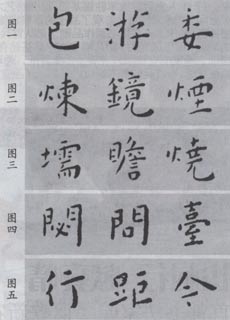 图一 包 游 委
图二 煉 鏡 煙
图三 壖 瞻 燒
图四 閟 問 臺
图五 行 距 令